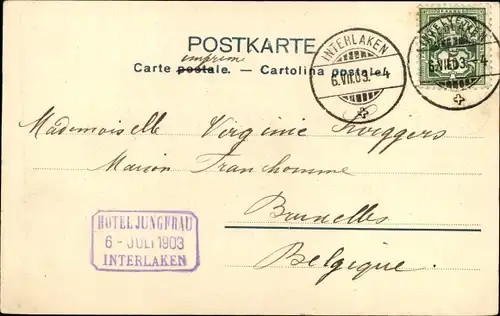 POSTKARTE
imprimé
Carte postale. — Cartolina postale.
INTERLAKEN
6.VII.03. — 4
INTERLAKEN
6.VII.03. — 4
Mademoiselle Virginie
Maison Franhomme
Bruxelles
Belgique.
HOTEL JUNGFRAU
6 - JULI 1903
INTERLAKEN